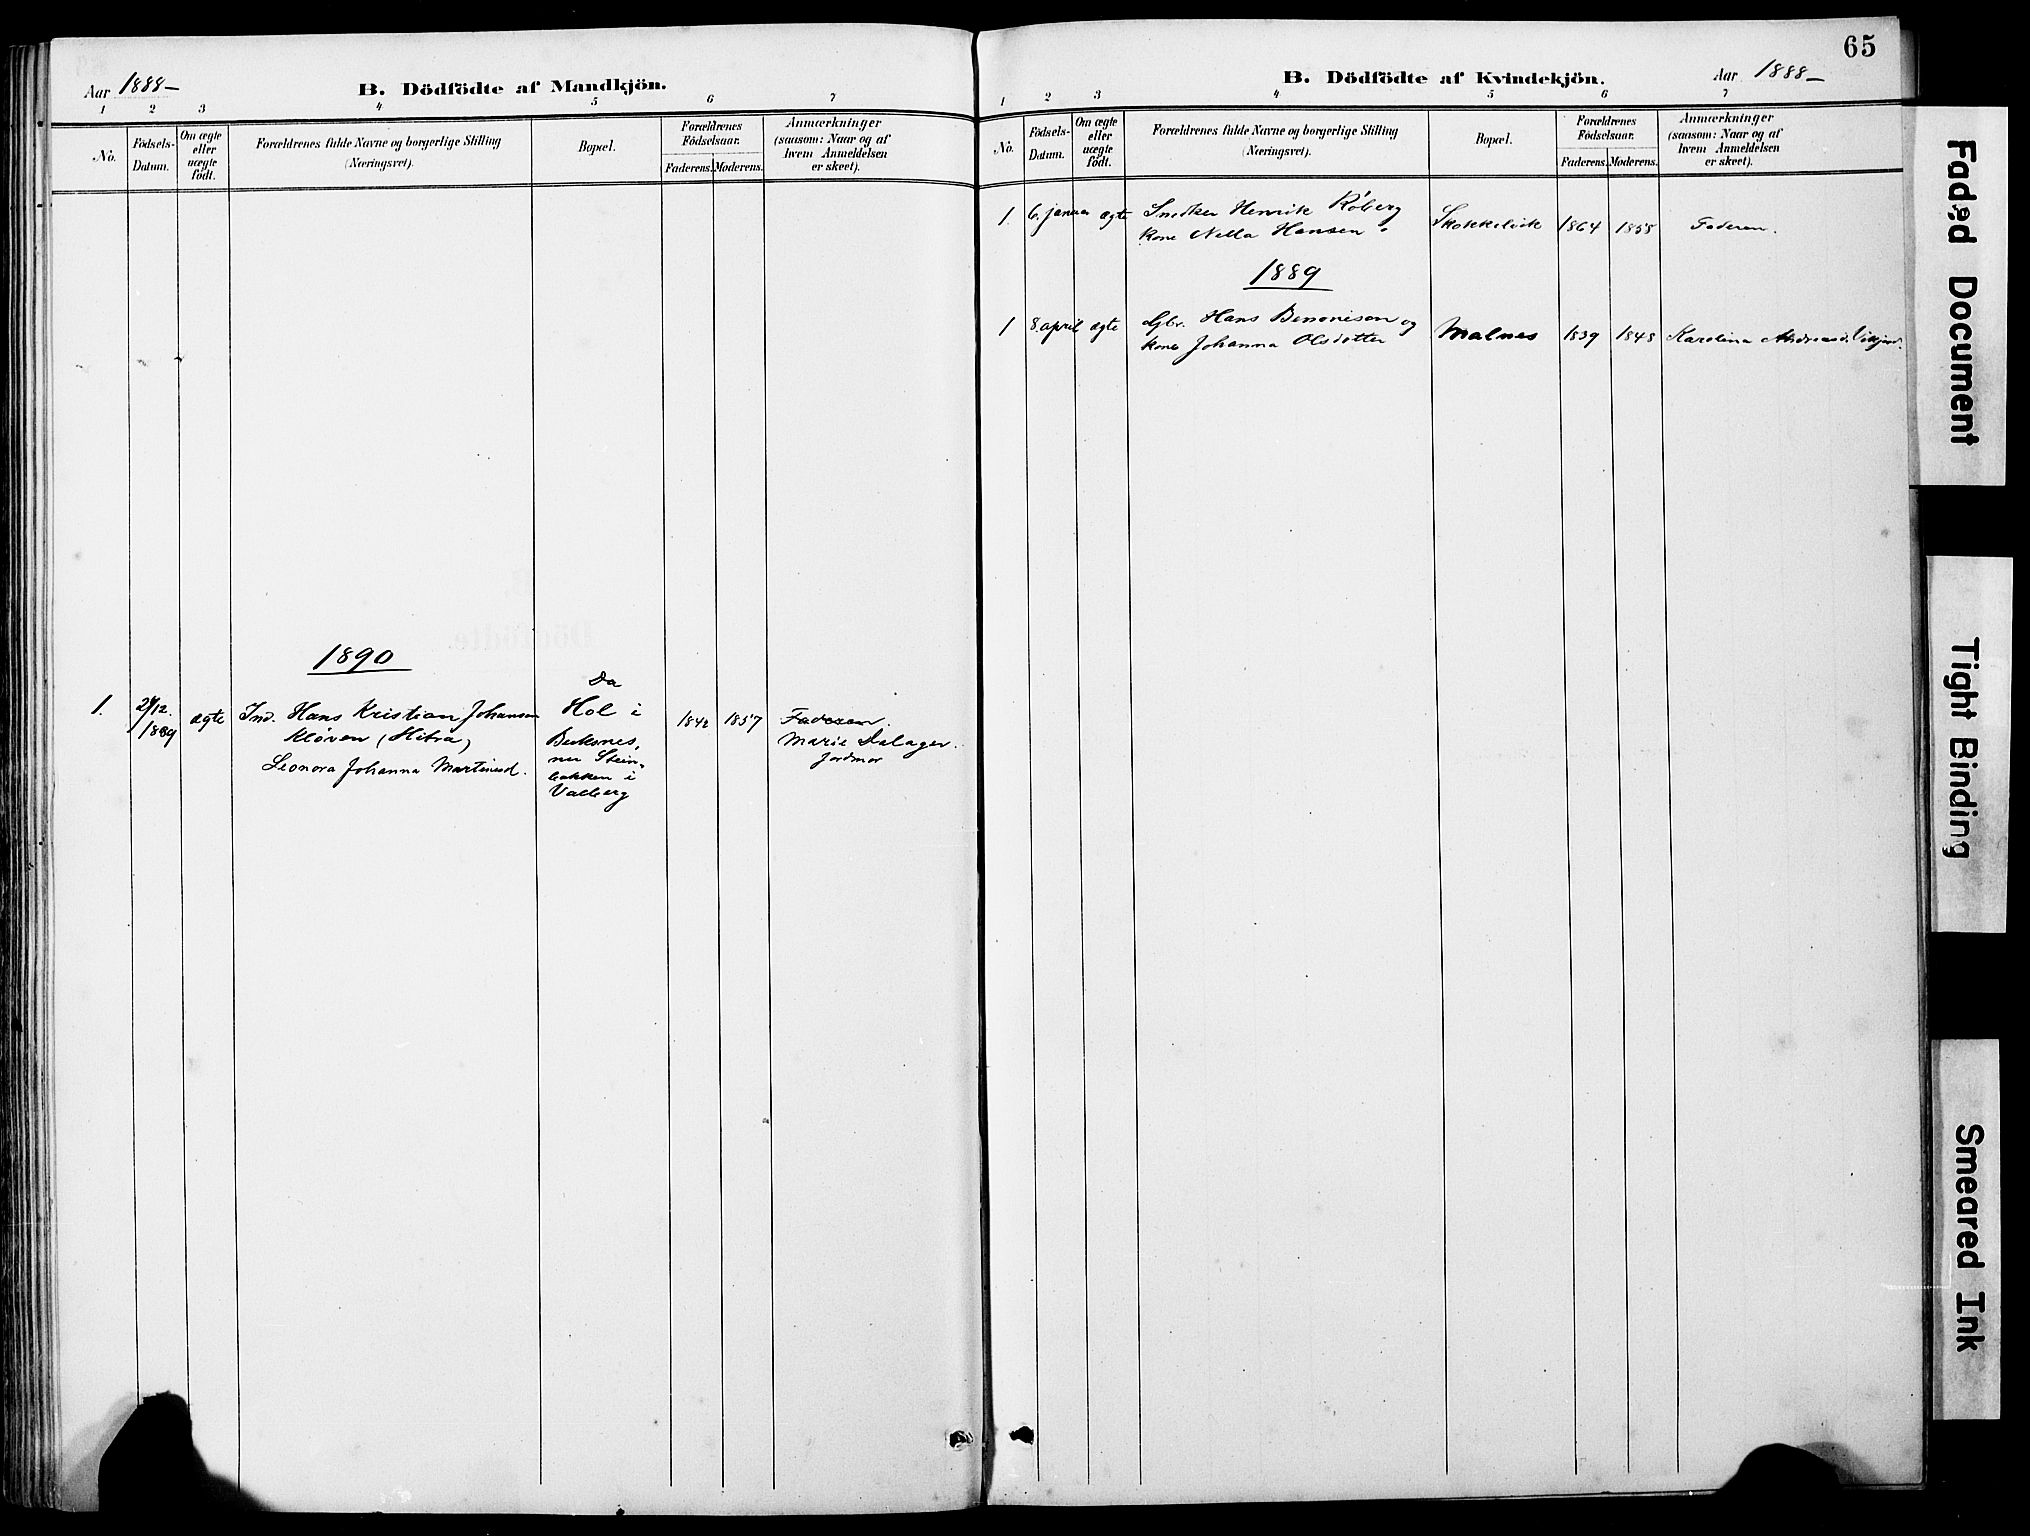 Aar 1888-
B. Dödfödte af Mandkjön.
1 2 3 4 5 6 7
No.
Födsels-Datum.
Om ægte eller uægte födt.
Forældrenes fulde Navne og borgerlige Stilling
(Næringsvei).
Bopæl.
Forældrenes Födselsaar.
Faderens. Moderens.
Anmærkninger
(saasom: Naar og af
hvem Anmeldelsen
er skeet).
1890
1. 29/12. 1889 ægte Ind. Hans Kristian Johansen
Kløven (Hitra)
Leonora Johanna Martinesd.
Da
Hol i
Buksnes,
nu Stein-
bakken i
Valberg
1842 1857
Faderen.
Marie Dalager.
Jordmor
65
B. Dödfödte af Kvindekjön.
Aar 1888-
1 2 3 4 5 6 7
No.
Födsels-Datum.
Om ægte eller uægte födt.
Forældrenes fulde Navne og borgerlige Stilling
(Næringsvei).
Bopæl.
Forældrenes Födselsaar.
Faderens. Moderens.
Anmærkninger
(saasom: Naar og af
hvem Anmeldelsen
er skeet).
1. 6. januar ægte Snedker Henrik Røberg
kone Nella Hansen
Skokkelvik 1864 1858 Faderen.
1889
1 8. april ægte Gbr. Hans Benonisen og
kone Johanna Olsdotter
Malnes 1839 1848 Karolina Andreasd.
Faded Document
Tight Binding
Smeared Ink